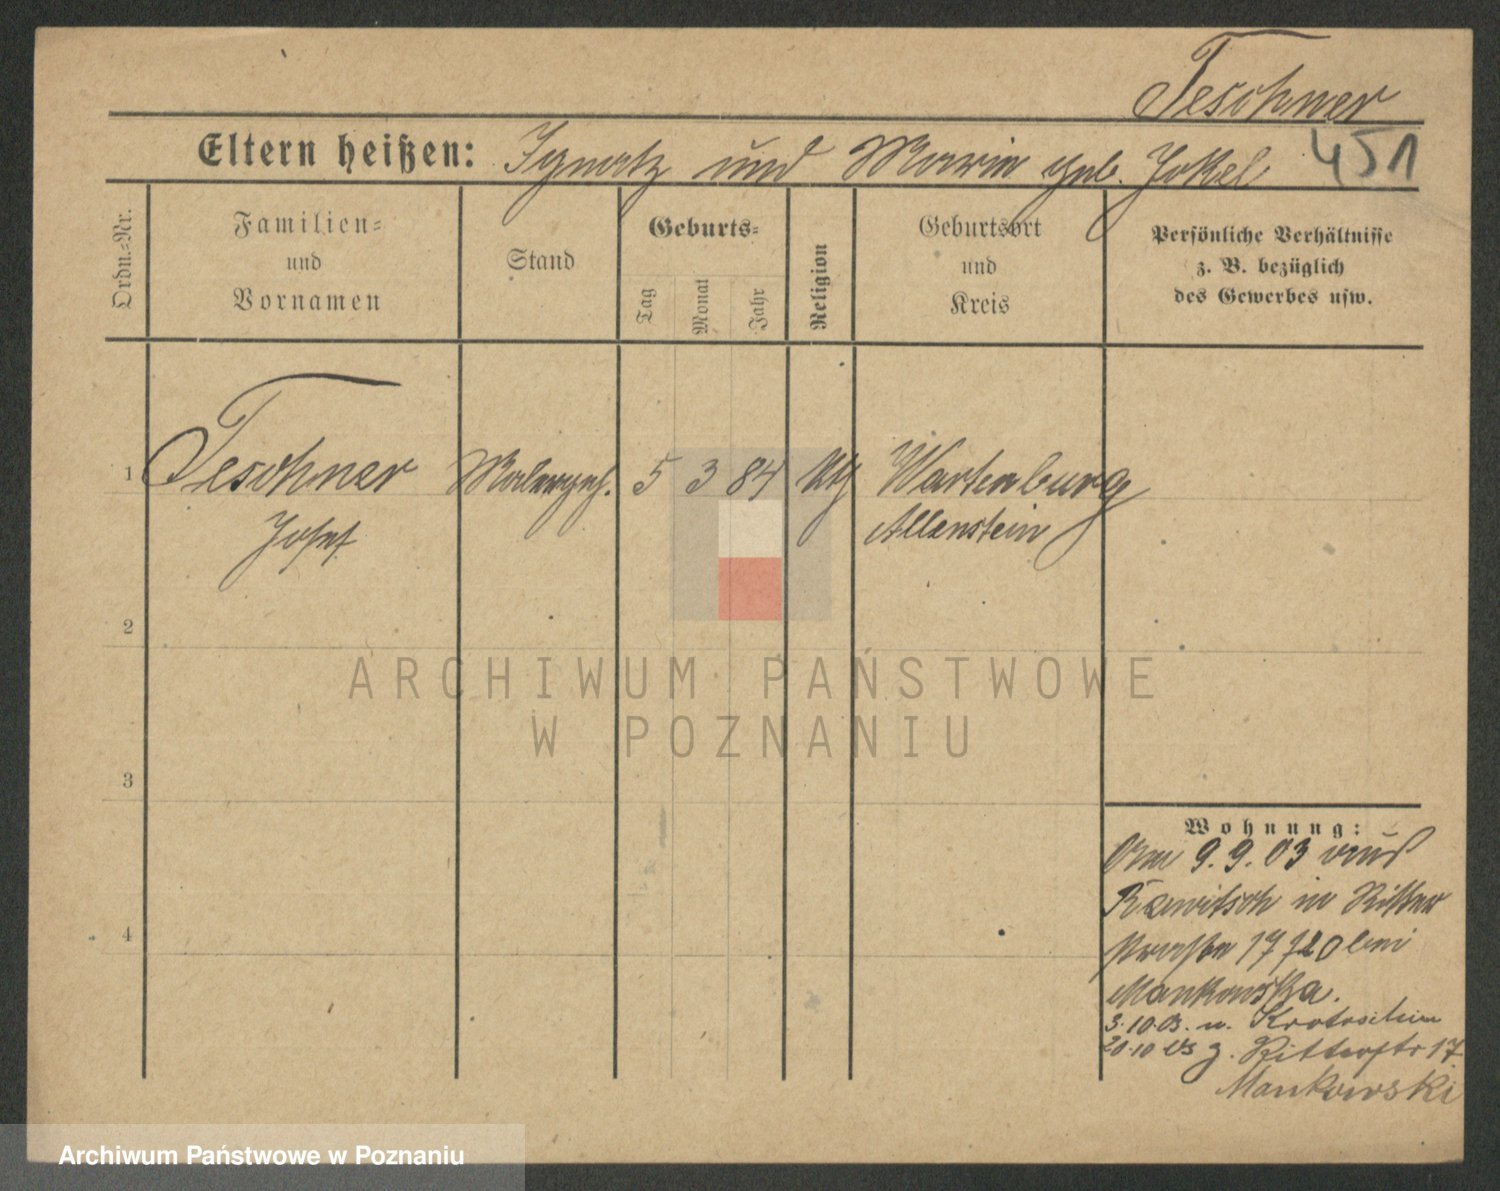 Teschner
Eltern heißen: Ignatz und Marie geb. Jokel 451
Ordn.-Nr.
Familien-
und
Vornamen
Stand
Geburts-
Tag
Monat
Jahr
Religion
Geburtsort
und
Kreis
Persönliche Verhältnisse
z. B. bezüglich
des Gewerbes usw.
1 Teschner Malergeh. 5 3 84 kth Wartenburg
Josef Allenstein
2
3
4
ARCHIWUM PAŃSTWOWE
W POZNANIU
Wohnung:
Am 9.9.03 aus
Rawitsch in Ritter
straße 17 bei
Mankowska.
3.10.03. n. Krotoschin
20.10 03 z. Ritterstr 17
Mankowski
Archiwum Państwowe w Poznaniu